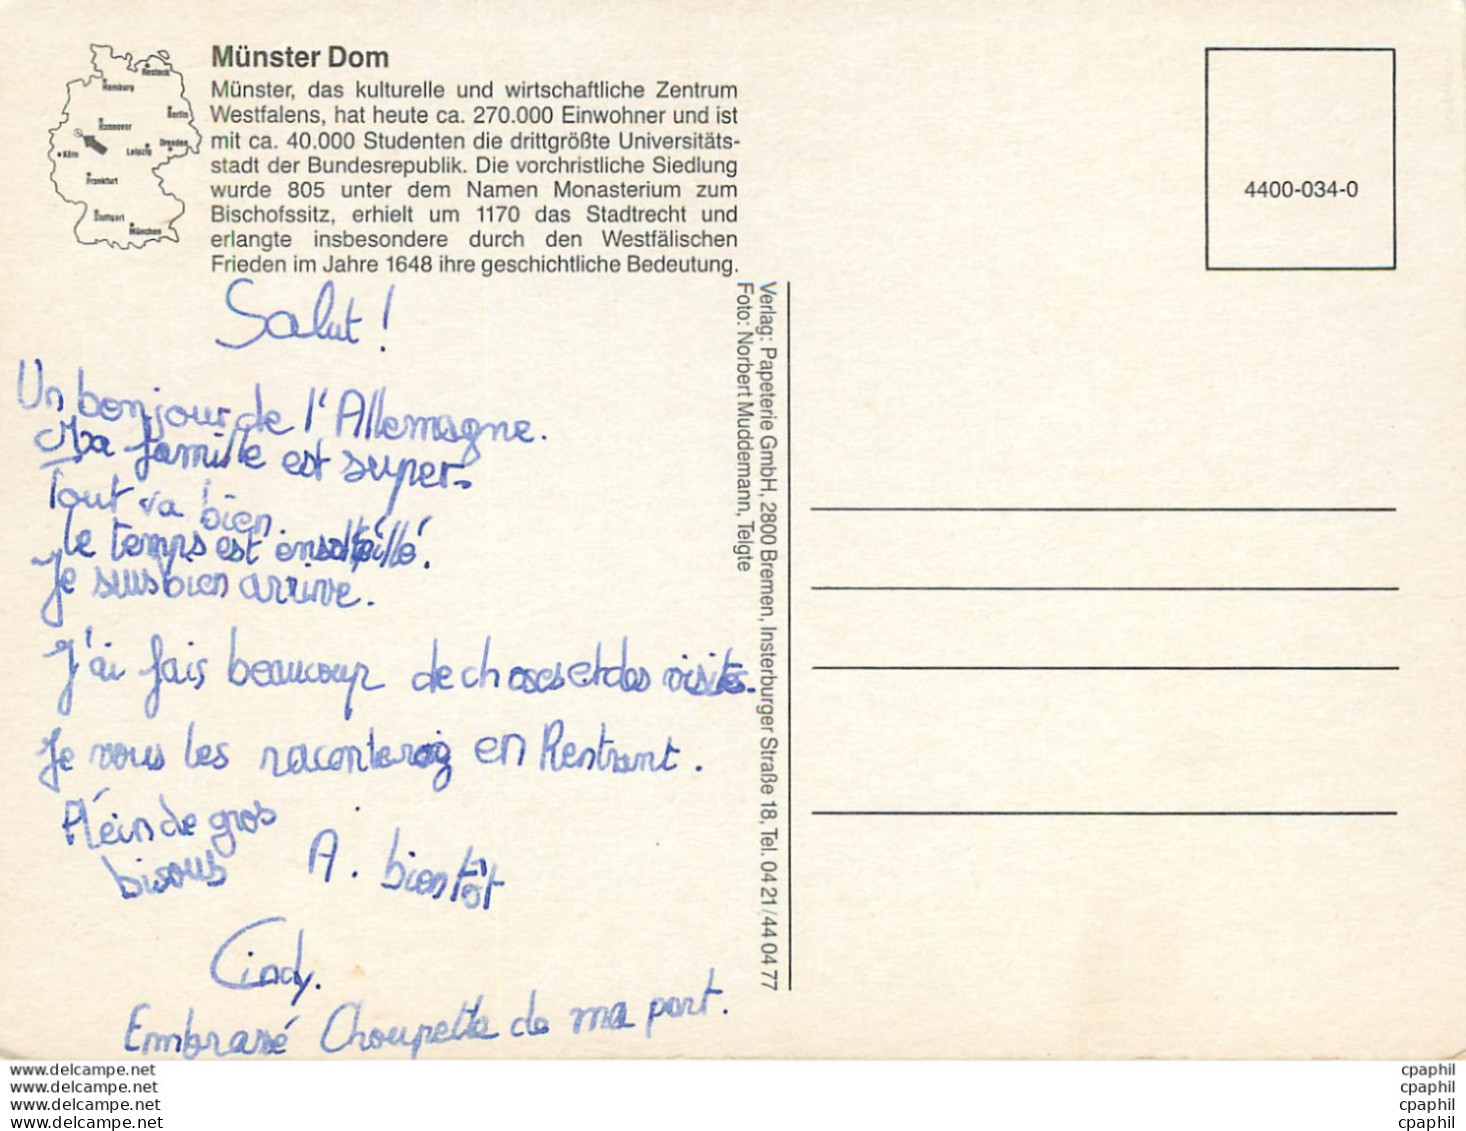 Münster Dom
Münster, das kulturelle und wirtschaftliche Zentrum
Westfalens, hat heute ca. 270.000 Einwohner und ist
mit ca. 40.000 Studenten die drittgrößte Universitäts-
stadt der Bundesrepublik. Die vorchristliche Siedlung
wurde 805 unter dem Namen Monasterium zum
Bischofssitz, erhielt um 1170 das Stadtrecht und
erlangte insbesondere durch den Westfälischen
Frieden im Jahre 1648 ihre geschichtliche Bedeutung.
Rostock
Hamburg
Berlin
Hannover
Dresden
Leipzig
Köln
Frankfurt
Stuttgart
München
4400-034-0
Salut !
Un bonjour de l'Allemagne.
Ma famille est super.
Tout va bien.
Le temps est ensoleillé.
Je suis bien arrive.
J'ai fais beaucoup de choses et des visites.
Je vous les raconterai en Rentrant.
Pléin de gros
bisous A. bientôt
Cindy.
Embrasé Choupette de ma part.
Verlag: Papeterie GmbH, 2800 Bremen, Insterburger Straße 18, Tel. 04 21 / 44 04 77
Foto: Norbert Muddemann, Telgte
www.delcampe.net
www.delcampe.net
www.delcampe.net
www.delcampe.net
cpaphil
cpaphil
cpaphil
cpaphil